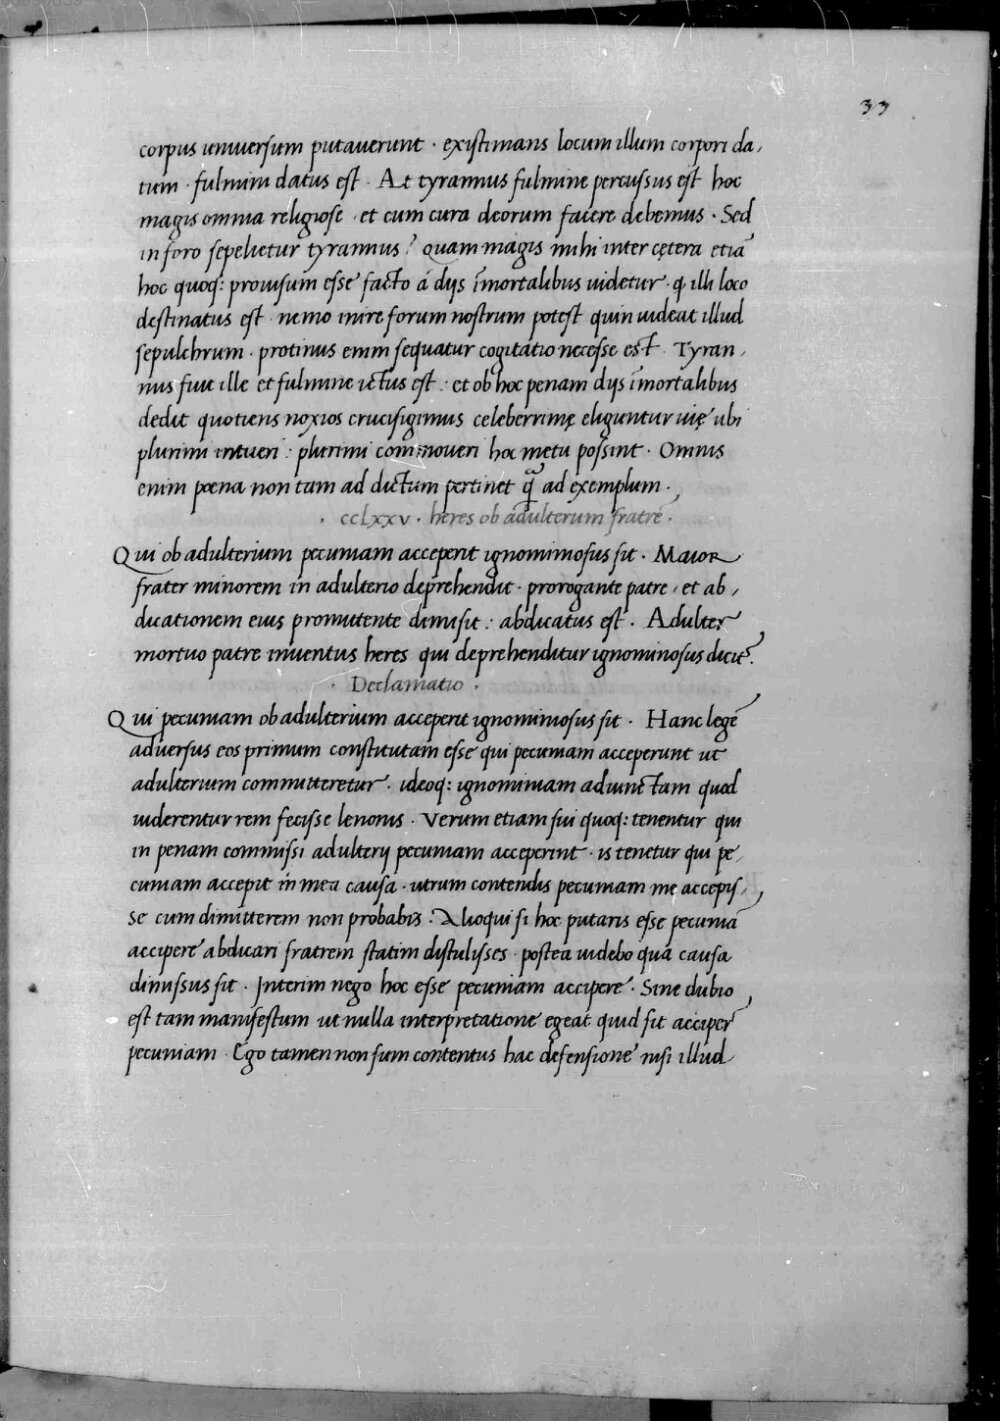 33
corpus uniuersum putauerunt · existimans locum illum corpori da,
tum · fulmini datus est · At tyrannus fulmine percussus est hoc
magis omnia religiose · et cum cura deorum facere debemus · Sed
in foro sepelietur tyrannus? quam magis mihi inter cętera etiā
hoc quoq: prouisum esse facto á dijs īmortalibus uidetur · q illi loco
destinatus est · nemo inire forum nostrum potest quin uideat illud
sepulchrum · protinus enim sequatur cogitatio necesse est · Tyran,
nus fuit ille et fulmine ictus est : et ob hoc penam dijs īmortalibus
dedit quotiens noxios crucifigimus celeberrimę eliguntur uię ubi
plurimi intueri : plurimi commoueri hoc metu possint · Omnis
enim poena non tam ad dictum pertinet q̃ ad exemplum ·
· cclxxv · heres ob adulterum fratrē ·
Qui ob adulterium pecuniam acceperit ignominiosus sit · Maior
frater minorem in adulterio deprehendit · prorogante patre · et ab,
dicationem eius promittente dimisit : abdicatus est · Adulter
mortuo patre inuentus heres qui deprehenditur ignominosus dicit᷑.
· Declamatio ·
Qui pecuniam ob adulterium acceperit ignominiosus sit · Hanc legē
aduersus eos primum constitutam esse qui pecuniam acceperunt ut
adulterium committeretur · ideoq: ignominiam adiunctam quod
uiderentur rem fecisse lenonis · Verum etiam sui quoq: tenentur qui
in penam commissi adulterij pecuniam acceperint · is tenetur qui pe,
cuniam accepit in mea causa · utrum contendis pecuniam me accepis,
se cum dimitterem non probabis : Alioqui si hoc putaris esse pecuniā
accipere abdicari fratrem statim distulisses · postea uidebo qua causa
dimissus sit · Interim nego hoc esse pecuniam accipere · Sine dubio
est tam manifestum ut nulla interpretatione egeat quid sit acciper
pecuniam · Ego tamen non sum contentus hac defensione nisi illud